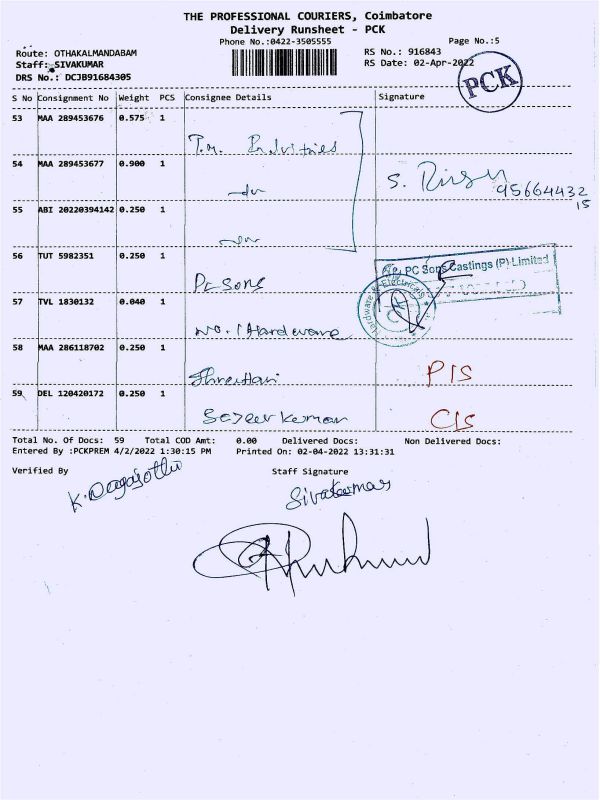 THE PROFESSIONAL COURIERS, Coimbatore
Delivery Runsheet - PCK
Phone No.:0422-3505555
Page No.:5
Route: OTHAKALMANDABAM
RS No.: 916843
Staff: SIVAKUMAR
RS Date: 02-Apr-2022
DRS No.: DCJB91684305
PCK
S No Consignment No Weight PCS Consignee Details Signature
53 MAA 289453676 0.575 1
T.M. Industries
54 MAA 289453677 0.900 1
S. 9566443215
55 ABI 20220394142 0.250 1
56 TUT 5982351 0.250 1
PC Sons
PC Sons Castings (P) Limited
57 TVL 1830132 0.040 1
No. 1 Hardware
Hardware & Electricals
58 MAA 286118702 0.250 1
Shreehari PIS
59 DEL 120420172 0.250 1
Sajeer kumar CIS
Total No. Of Docs: 59 Total COD Amt: 0.00 Delivered Docs: Non Delivered Docs:
Entered By :PCKPREM 4/2/2022 1:30:15 PM Printed On: 02-04-2022 13:31:31
Verified By Staff Signature
Sivakumar